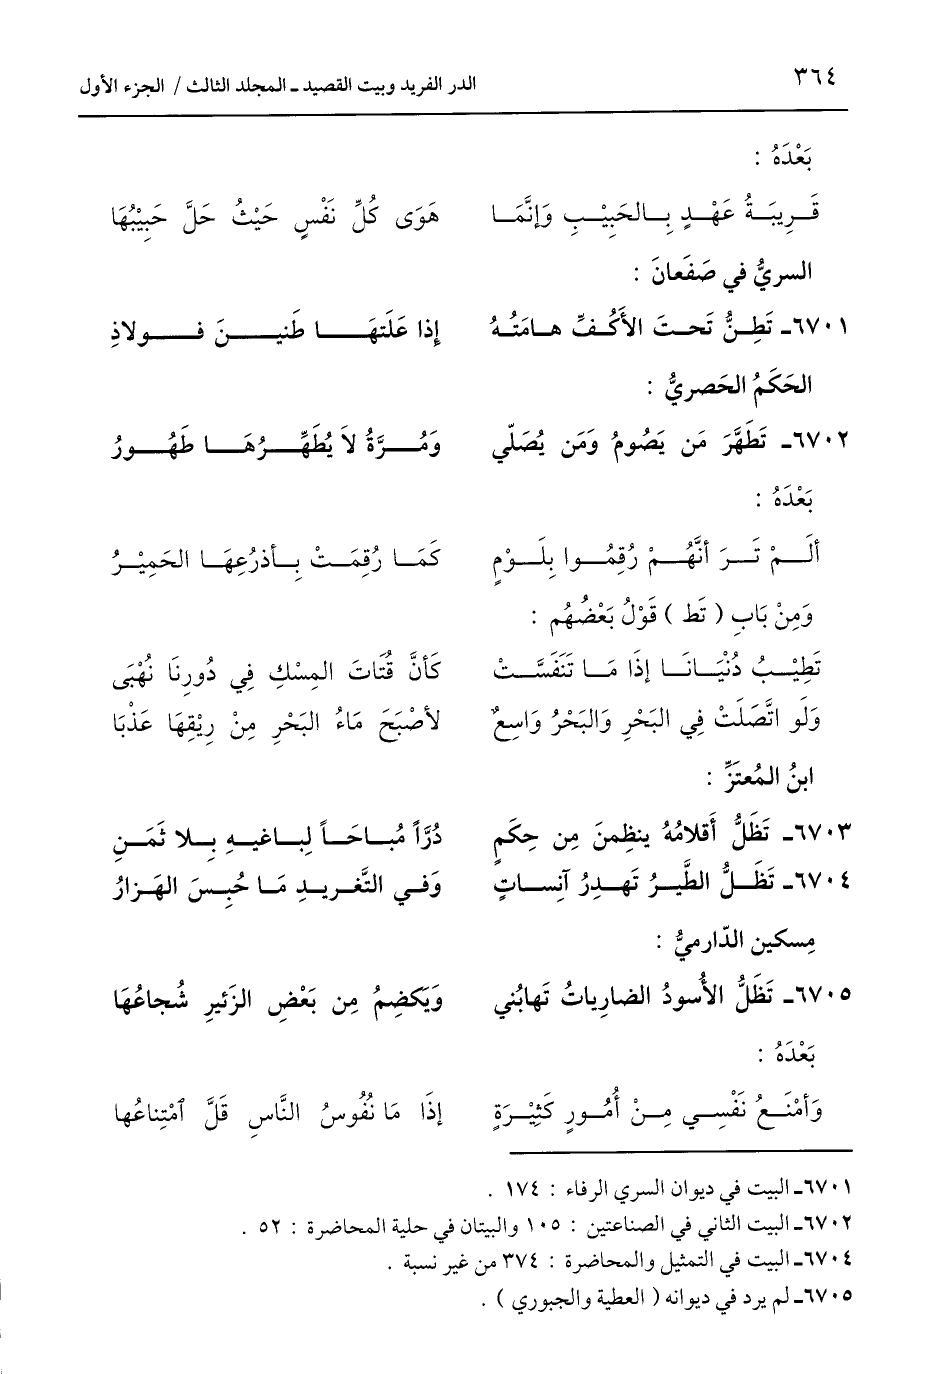 ٣٦٤ الدر الفريد وبيت القصيد ـ المجلد الثالث / الجزء الأول
بَعْدَهُ :
قَرِيبَةُ عَهْدٍ بِالحَبِيْبِ وَإِنَّمَا هَوَى كُلِّ نَفْسٍ حَيْثُ حَلَّ حَبِيْبُهَا
السريُّ في صَفَعانَ :
٦٧٠١ـ تَطِنُّ تَحتَ الأَكُفِّ هامَتُهُ إِذا عَلَتهَا طَنينَ فولاذِ
الحَكَمُ الحَصريُّ :
٦٧٠٢ـ تَطَهَّرَ مَن يَصُومُ وَمَن يُصَلّي وَمُرَّةُ لاَ يُطَهِّرُهَا طَهُورُ
بَعْدَهُ :
أَلَمْ تَرَ أنَّهُمْ رُقِمُوا بِلَوْمٍ كَمَا رُقِمَتْ بِأذرُعِهَا الحَمِيْرُ
وَمِنْ بَابِ ( تَط ) قَوْلُ بَعْضُهُم :
تَطِيْبُ دُنْيَانَا إِذَا مَا تَنَفَسَّتْ كَأنَّ فُتَاتَ المِسْكِ فِي دُورِنَا نُهْبَى
وَلَو اتَّصَلَتْ فِي البَحْرِ وَالبَحْرُ وَاسِعٌ لأصْبَحَ مَاءُ البَحْرِ مِنْ رِيْقِهَا عَذْبَا
ابنُ المُعتَزِّ :
٦٧٠٣ـ تَظَلُّ أقلامُهُ ينظِمنَ مِن حِكَمٍ دُرَّاً مُبَاحَاً لِبَاغيهِ بِلا ثَمَنِ
٦٧٠٤ـ تَظَلُّ الطَّيرُ تَهدِرُ آنِسَاتٍ وَفي التَّغرِيدِ مَا حُبِسَ الهَزارُ
مِسكين الدّارميُّ :
٦٧٠٥ـ تَظَلُّ الأُسودُ الضارِياتُ تَهابُني وَيَكضِمُ مِن بَعْضِ الزَئيرِ شُجاعُهَا
بَعْدَهُ :
وَأمْنَعُ نَفْسِي مِنْ أُمُورٍ كَثِيْرَةٍ إِذَا مَا نُفُوسُ النَّاسِ قَلَّ ٱمْتِناعُها
٦٧٠١ـ البيت في ديوان السري الرفاء : ١٧٤ .
٦٧٠٢ـ البيت الثاني في الصناعتين : ١٠٥ والبيتان في حلية المحاضرة : ٥٢ .
٦٧٠٤ـ البيت في التمثيل والمحاضرة : ٣٧٤ من غير نسبة .
٦٧٠٥ـ لم يرد في ديوانه ( العطية والجبوري ) .